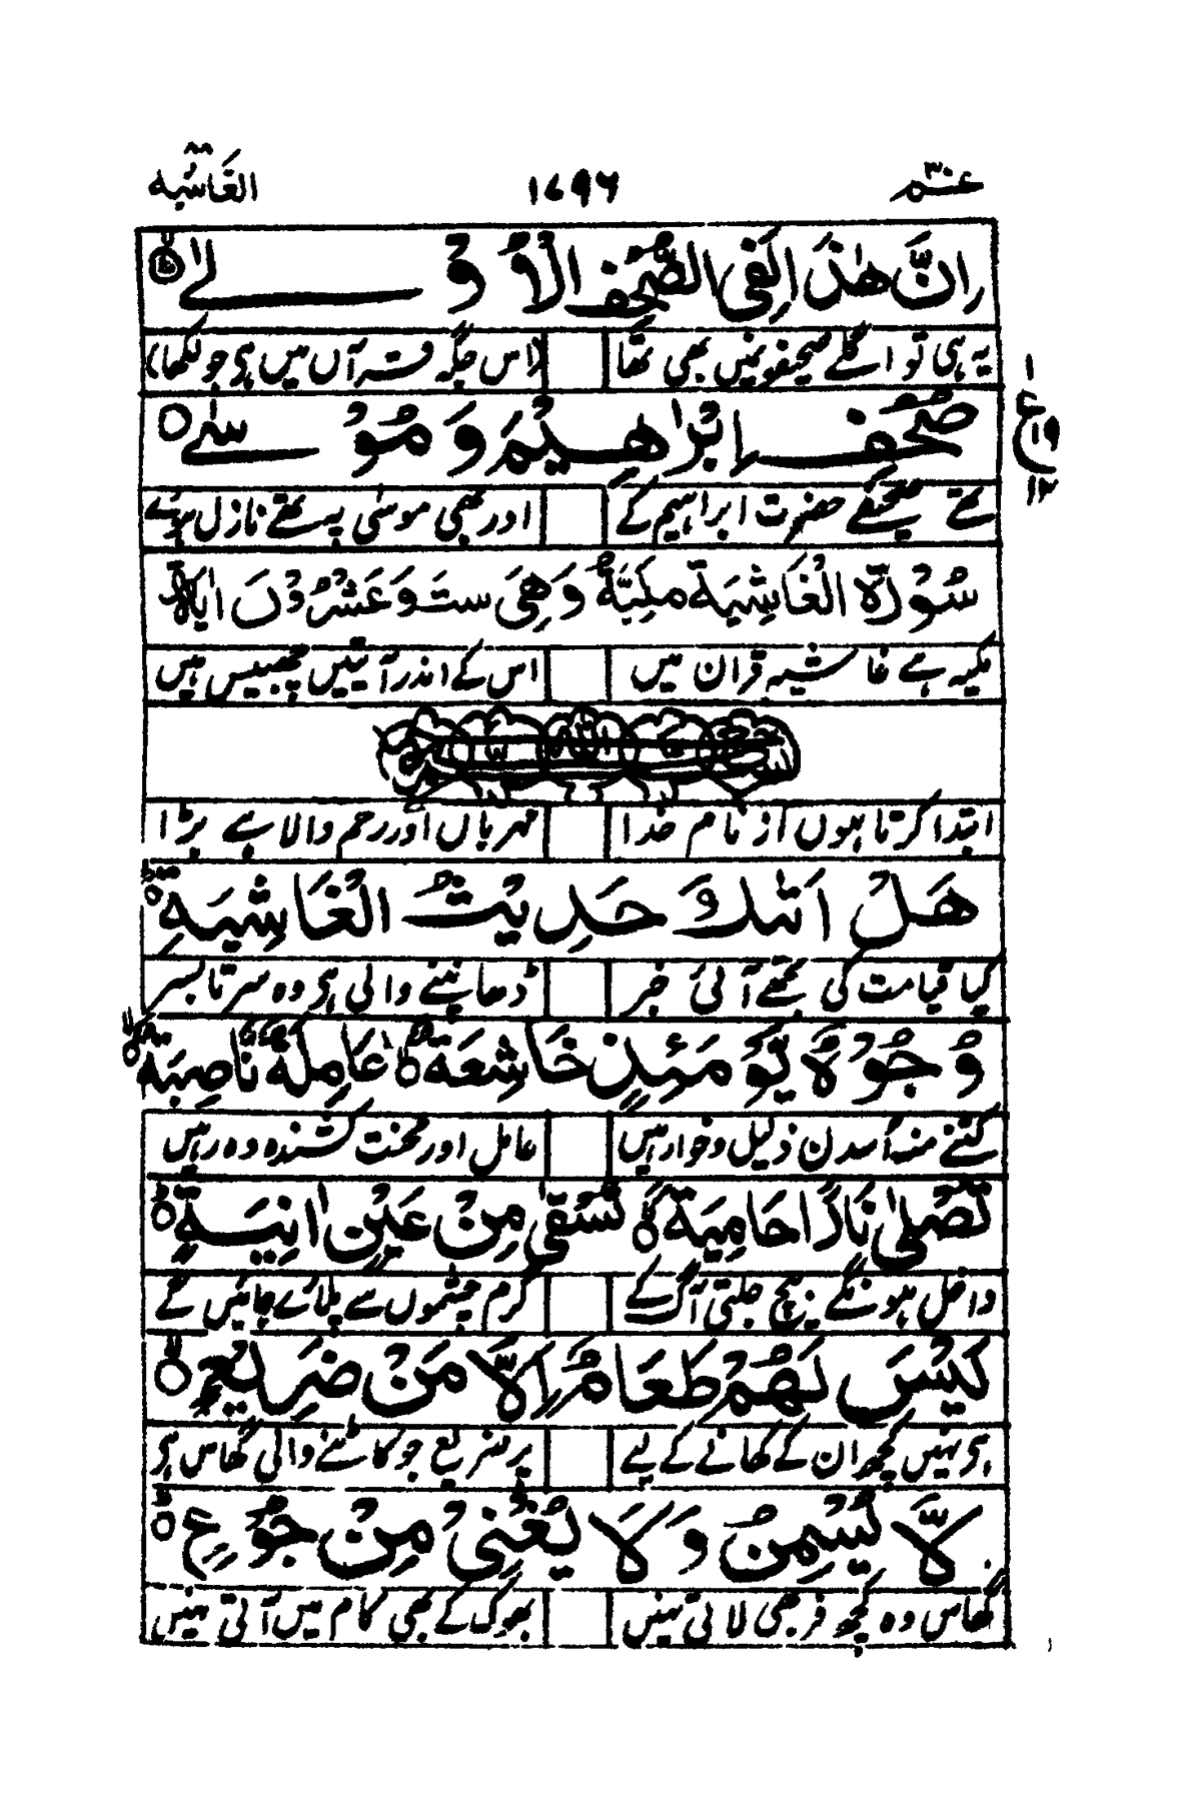 عـم ٣٠ ١٤٩٦ الغاشيه ٨٨
اِنَّ هٰذَا لَفِی الصُّحُفِ الْاُوْلٰے ۙ
یہ ہی تو اگلے صحیفونمیں بھی تھا (اس جگہ قرآں میں ہی جو لکھا)
صُحُفِ اِبْرٰاهِیْمَ وَ مُوْسٰے
تھے صحیفے حضرت ابراہیم کے اور بھی موسٰی پہ تھے نازل ہوئے
سُوْرَةُ الْغَاشِيَةِ مَكِّيَّةٌ وَّهِیَ سِتٌّ وَّعَشْرُوْنَ اٰيَةً
مکیہ ہے غاشیہ قرآن میں اس کے اندر آیتیں چھبیس ہیں
ابتدا کرتا ہوں از نام خدا مہرباں اور رحم والا ہے بڑا
هَلْ اَتٰىكَ حَدِيْثُ الْغَاشِيَةِ ؕ
کیا قیامت کی تجھے آئی خبر ڈھانپنے والی ہی وہ سر تا بسر
وُجُوْهٌ يَّوْمَئِذٍ خَاشِعَةٌ ۙ عَامِلَةٌ نَّاصِبَةٌ ۙ
کتنے منہ اُسدن ذلیل و خوار ہیں عامل اور محنت کشندہ وہ رہیں
تَصْلٰى نَارًا حَامِيَةً ۙ تُسْقٰى مِنْ عَيْنٍ اٰنِيَةٍ ؕ
داخل ہونگے بیچ جلتی آگ کے گرم چشموں سے پلائے جائیں گے
لَيْسَ لَهُمْ طَعَامٌ اِلَّا مِنْ ضَرِيْعٍ ۙ
ہی نہیں کچھ ان کے کھانے کے لیے پر ضریع جو کاٹنے والی گھاس ہی
لَّا يُسْمِنُ وَلَا يُغْنِیْ مِنْ جُوْعٍ ؕ
گھاس وہ کچھ فربھی لاتی نہیں بھوک کے بھی کام میں آتی نہیں